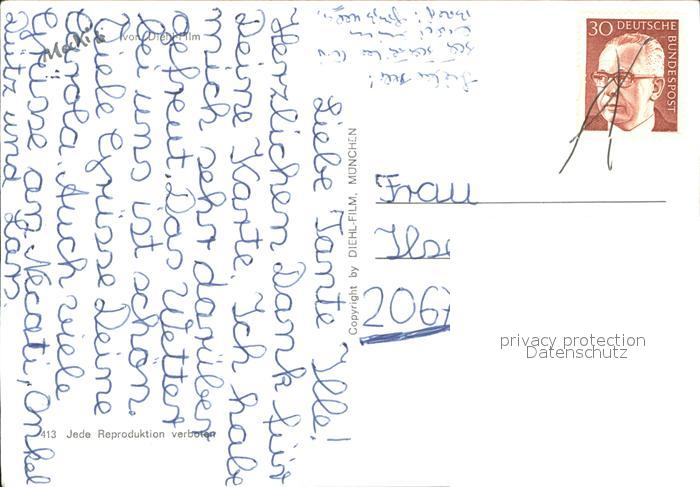 Liebe Tante Ille!
Herzlichen Dank für
Deine Karte. Ich habe
mich sehr darüber
gefreut. Das Wetter
bei uns ist schön.
Viele Grüsse Deine
Carola. Auch viele
Grüsse an Necati, Onkel
Lütz und
von Diehl Film
413 Jede Reproduktion verboten
Copyright by DIEHL-FILM, MÜNCHEN
30 DEUTSCHE
BUNDESPOST
Frau
Ilse
2067
privacy protection
Datenschutz